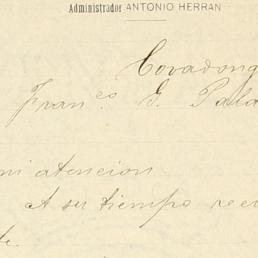 Administrador ANTONIO HERRAN
Covadong
Fran.co G. Pala
mi atencion
A su tiempo reci
te.